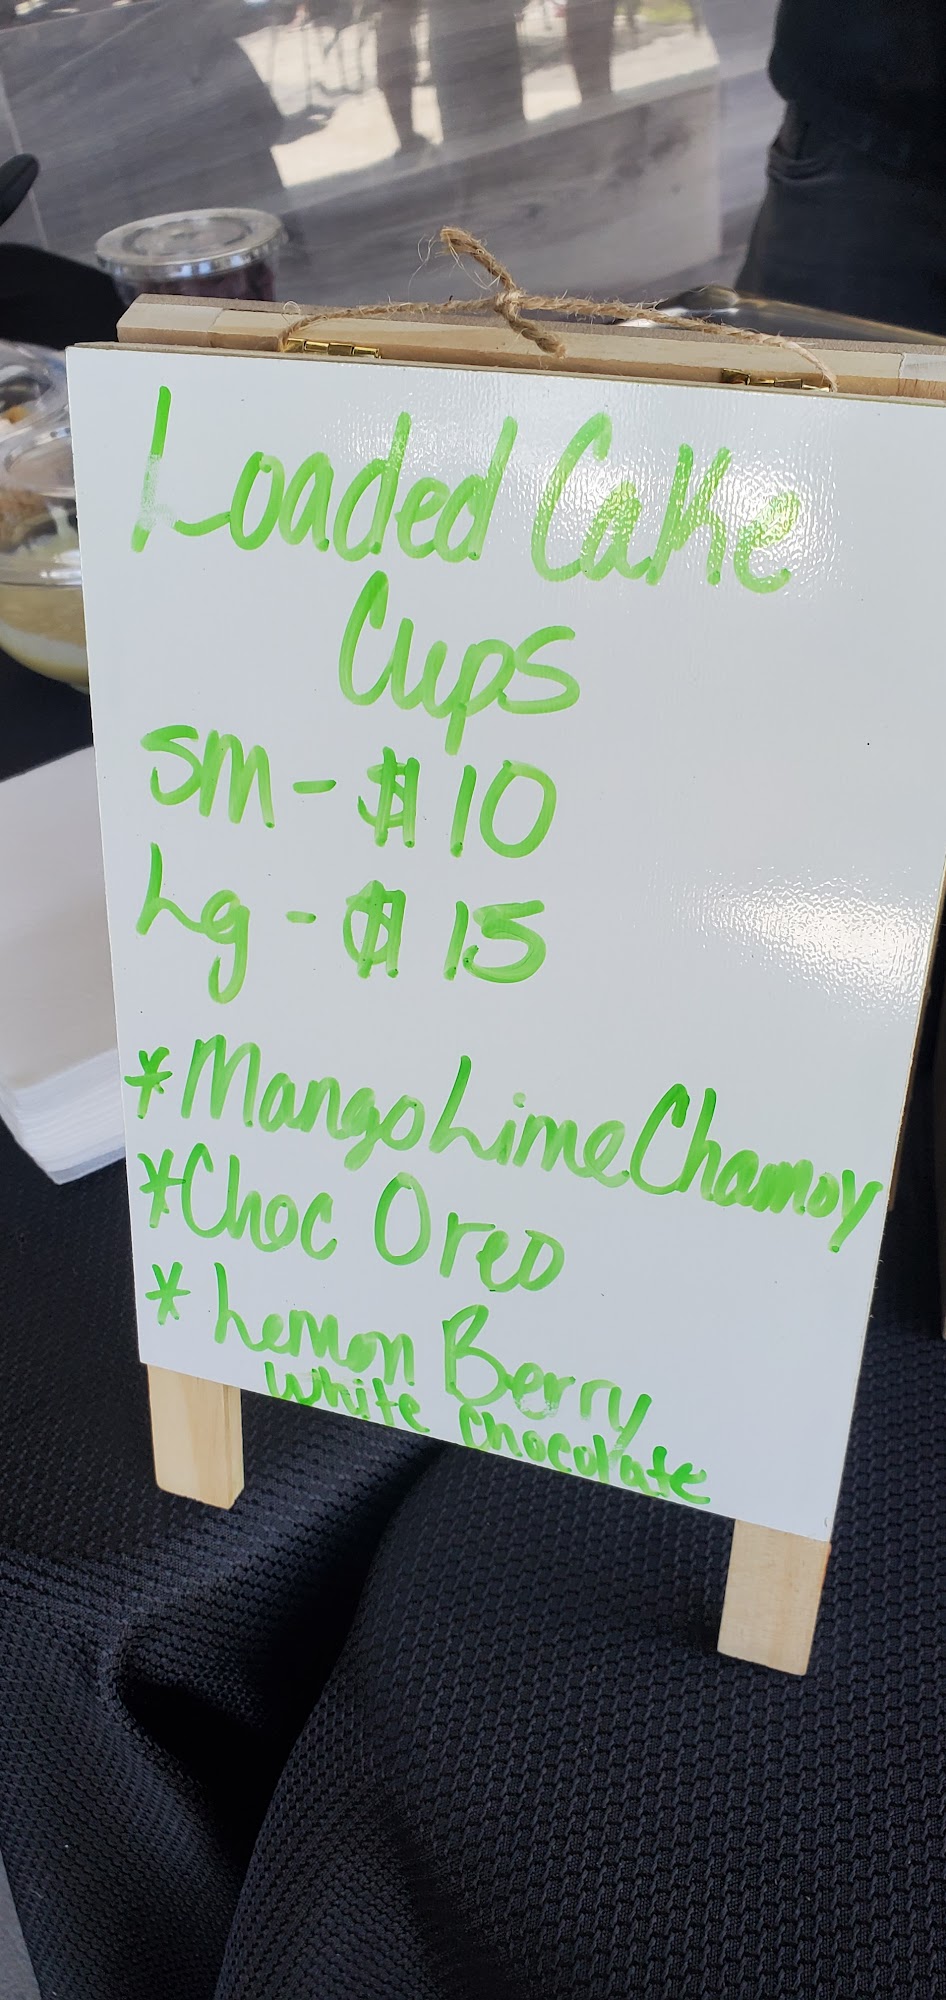 Loaded Cake
Cups
sm - $10
Lg - $15
*MangoLimeChamoy
*Choc Oreo
* Lemon Berry
White Chocolate